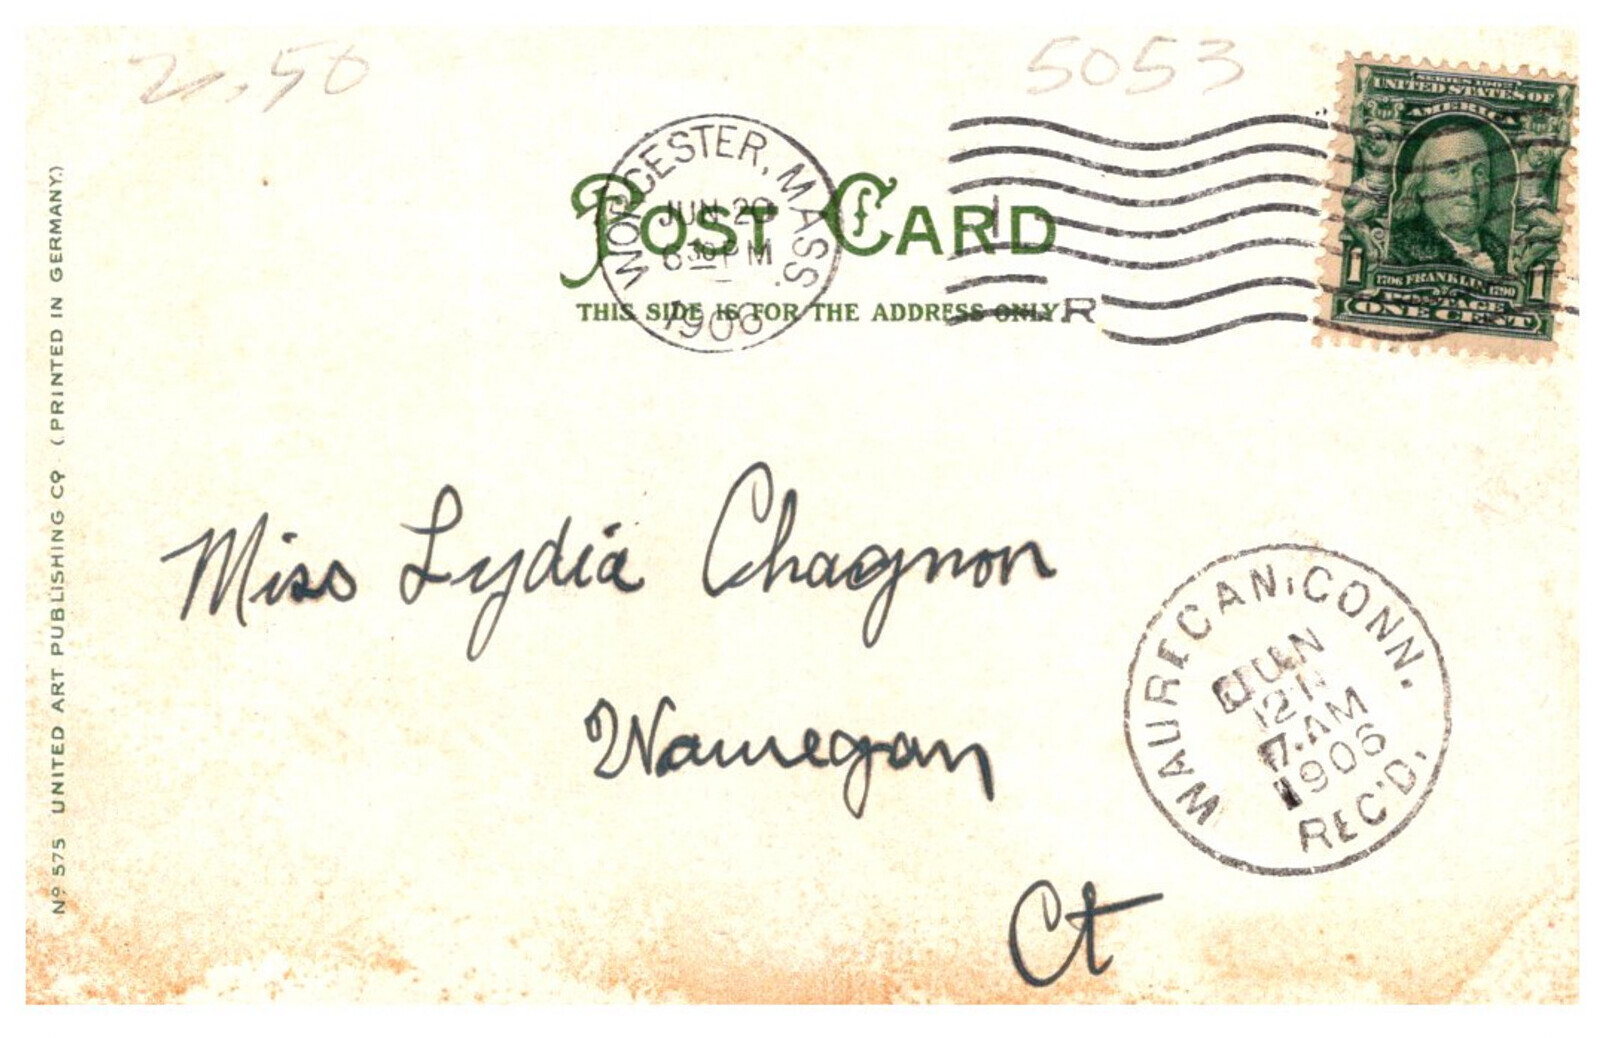 2.50
5053
SERIES 1902
UNITED STATES OF
AMERICA
1706 FRANKLIN 1790
POSTAGE
1 1
ONE CENT
WORCESTER, MASS.
JUN 20
6 30 PM
1906
POST CARD
THIS SIDE IS FOR THE ADDRESS ONLY
R
Nº 575 UNITED ART PUBLISHING Cº (PRINTED IN GERMANY.)
Miss Lydia Chagnon
Wauregan
Ct
WAURECAN, CONN.
JUN
21
7.AM
1906
REC'D.